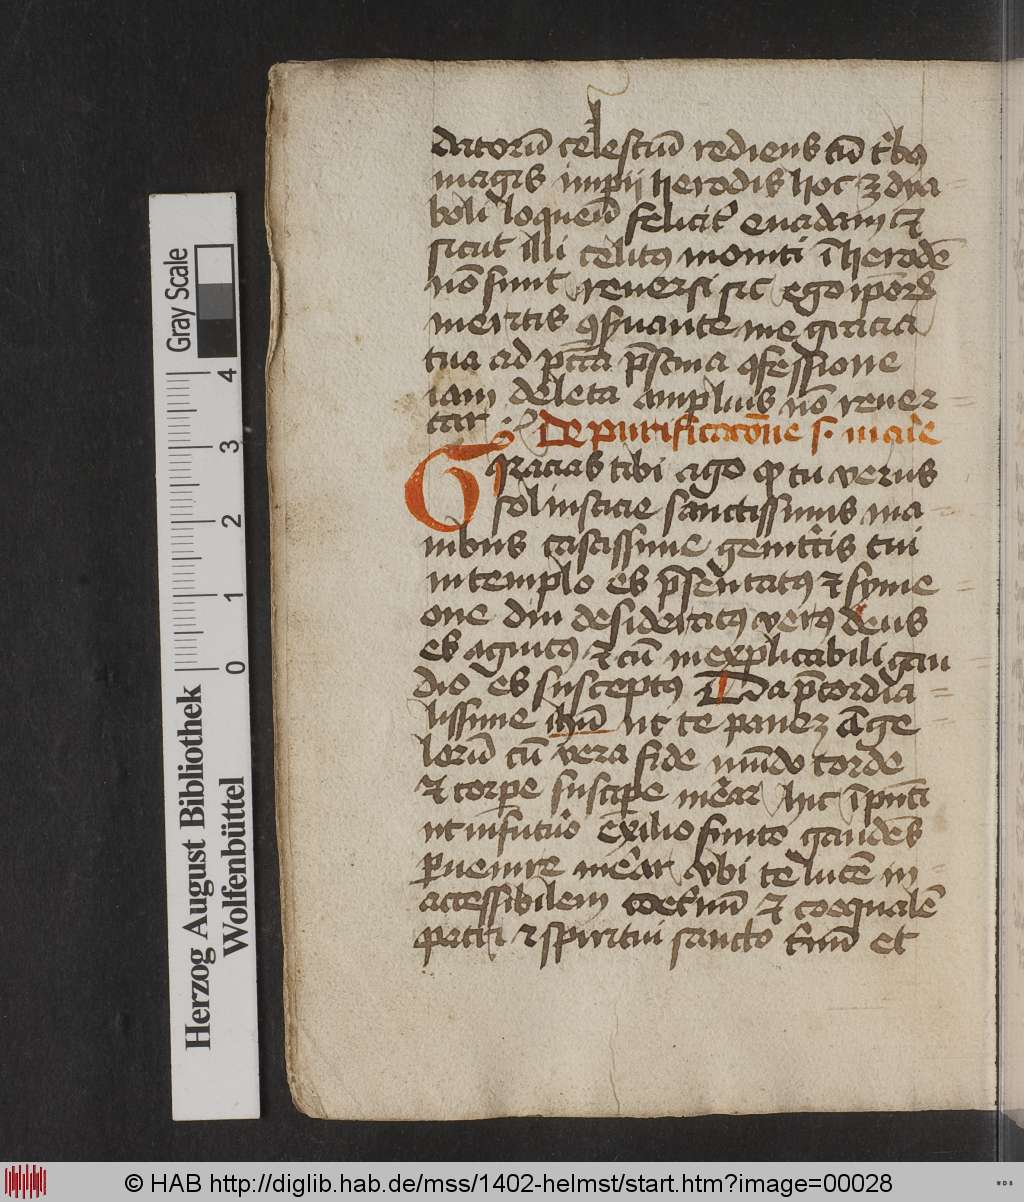 datorū celestiū rediens cū t'bꝯ
magis impii herodis hoc ꝫ dya
boli loqueiū felicit' euadam et
sicut illi celitꝯ moniti ī herodē
nō sunt reuersi sic ego
meritis ꝯseruante me gratia
tua ad pctā p̄scīna ꝯfessione
iam deleta amplius nō reuer
tar
De purificacōne s. marie
Gracias tibi ago qꝫ tu verus
sol iusticie sanctissimis ma
nibus castissime genit'cis tui
in templo es p̄sentatꝯ et syme
one diu desideratꝯ verꝯ deus
es agnitꝯ et cū inexplicabili gau
dio es susceptꝯ Da p̄cordia
lissime ihū ut te panem āge
lorū cū vera fide mūdo corde
et corpe suscipe mear hic ī pn̄ti
ut in futuro exilio finito gaudēs
puenire mear vbi te lucē in
accessibilem coet'nū et coequalē
patri et spiritui sancto et'nū et
Gray Scale
4
3
2
1
0
Herzog August Bibliothek
Wolfenbüttel
© HAB http://diglib.hab.de/mss/1402-helmst/start.htm?image=00028